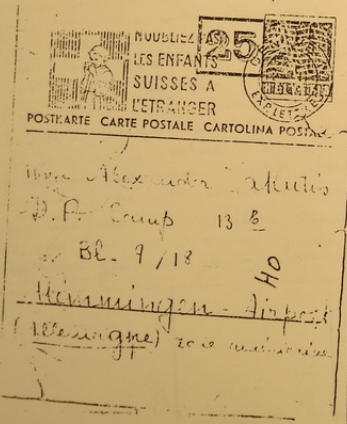 N'OUBLIEZ PAS
LES ENFANTS
SUISSES A
L'ETRANGER
25
POSTKARTE CARTE POSTALE CARTOLINA POSTALE
Alexander
D. P. Camp 13 b
Bl. 9/18
HO
Mimmingen - Airport
(Allemagne) zone américaine